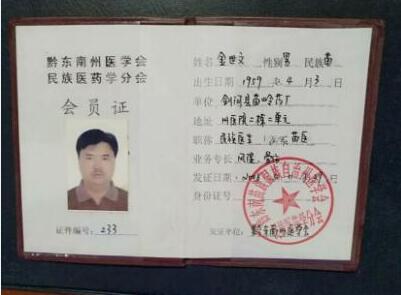 黔东南州医学会
民族医药学分会
会员证
证件编号：233
姓名 金世文 性别 男 民族 苗
出生日期 1959 年 4 月 3 日
单位 剑河县苗岭药厂
地址 州医院二栋二单元
职称 民族医生 苗医
业务专长 风湿
发证日期
身份证号
发证单位：黔东南州医学会